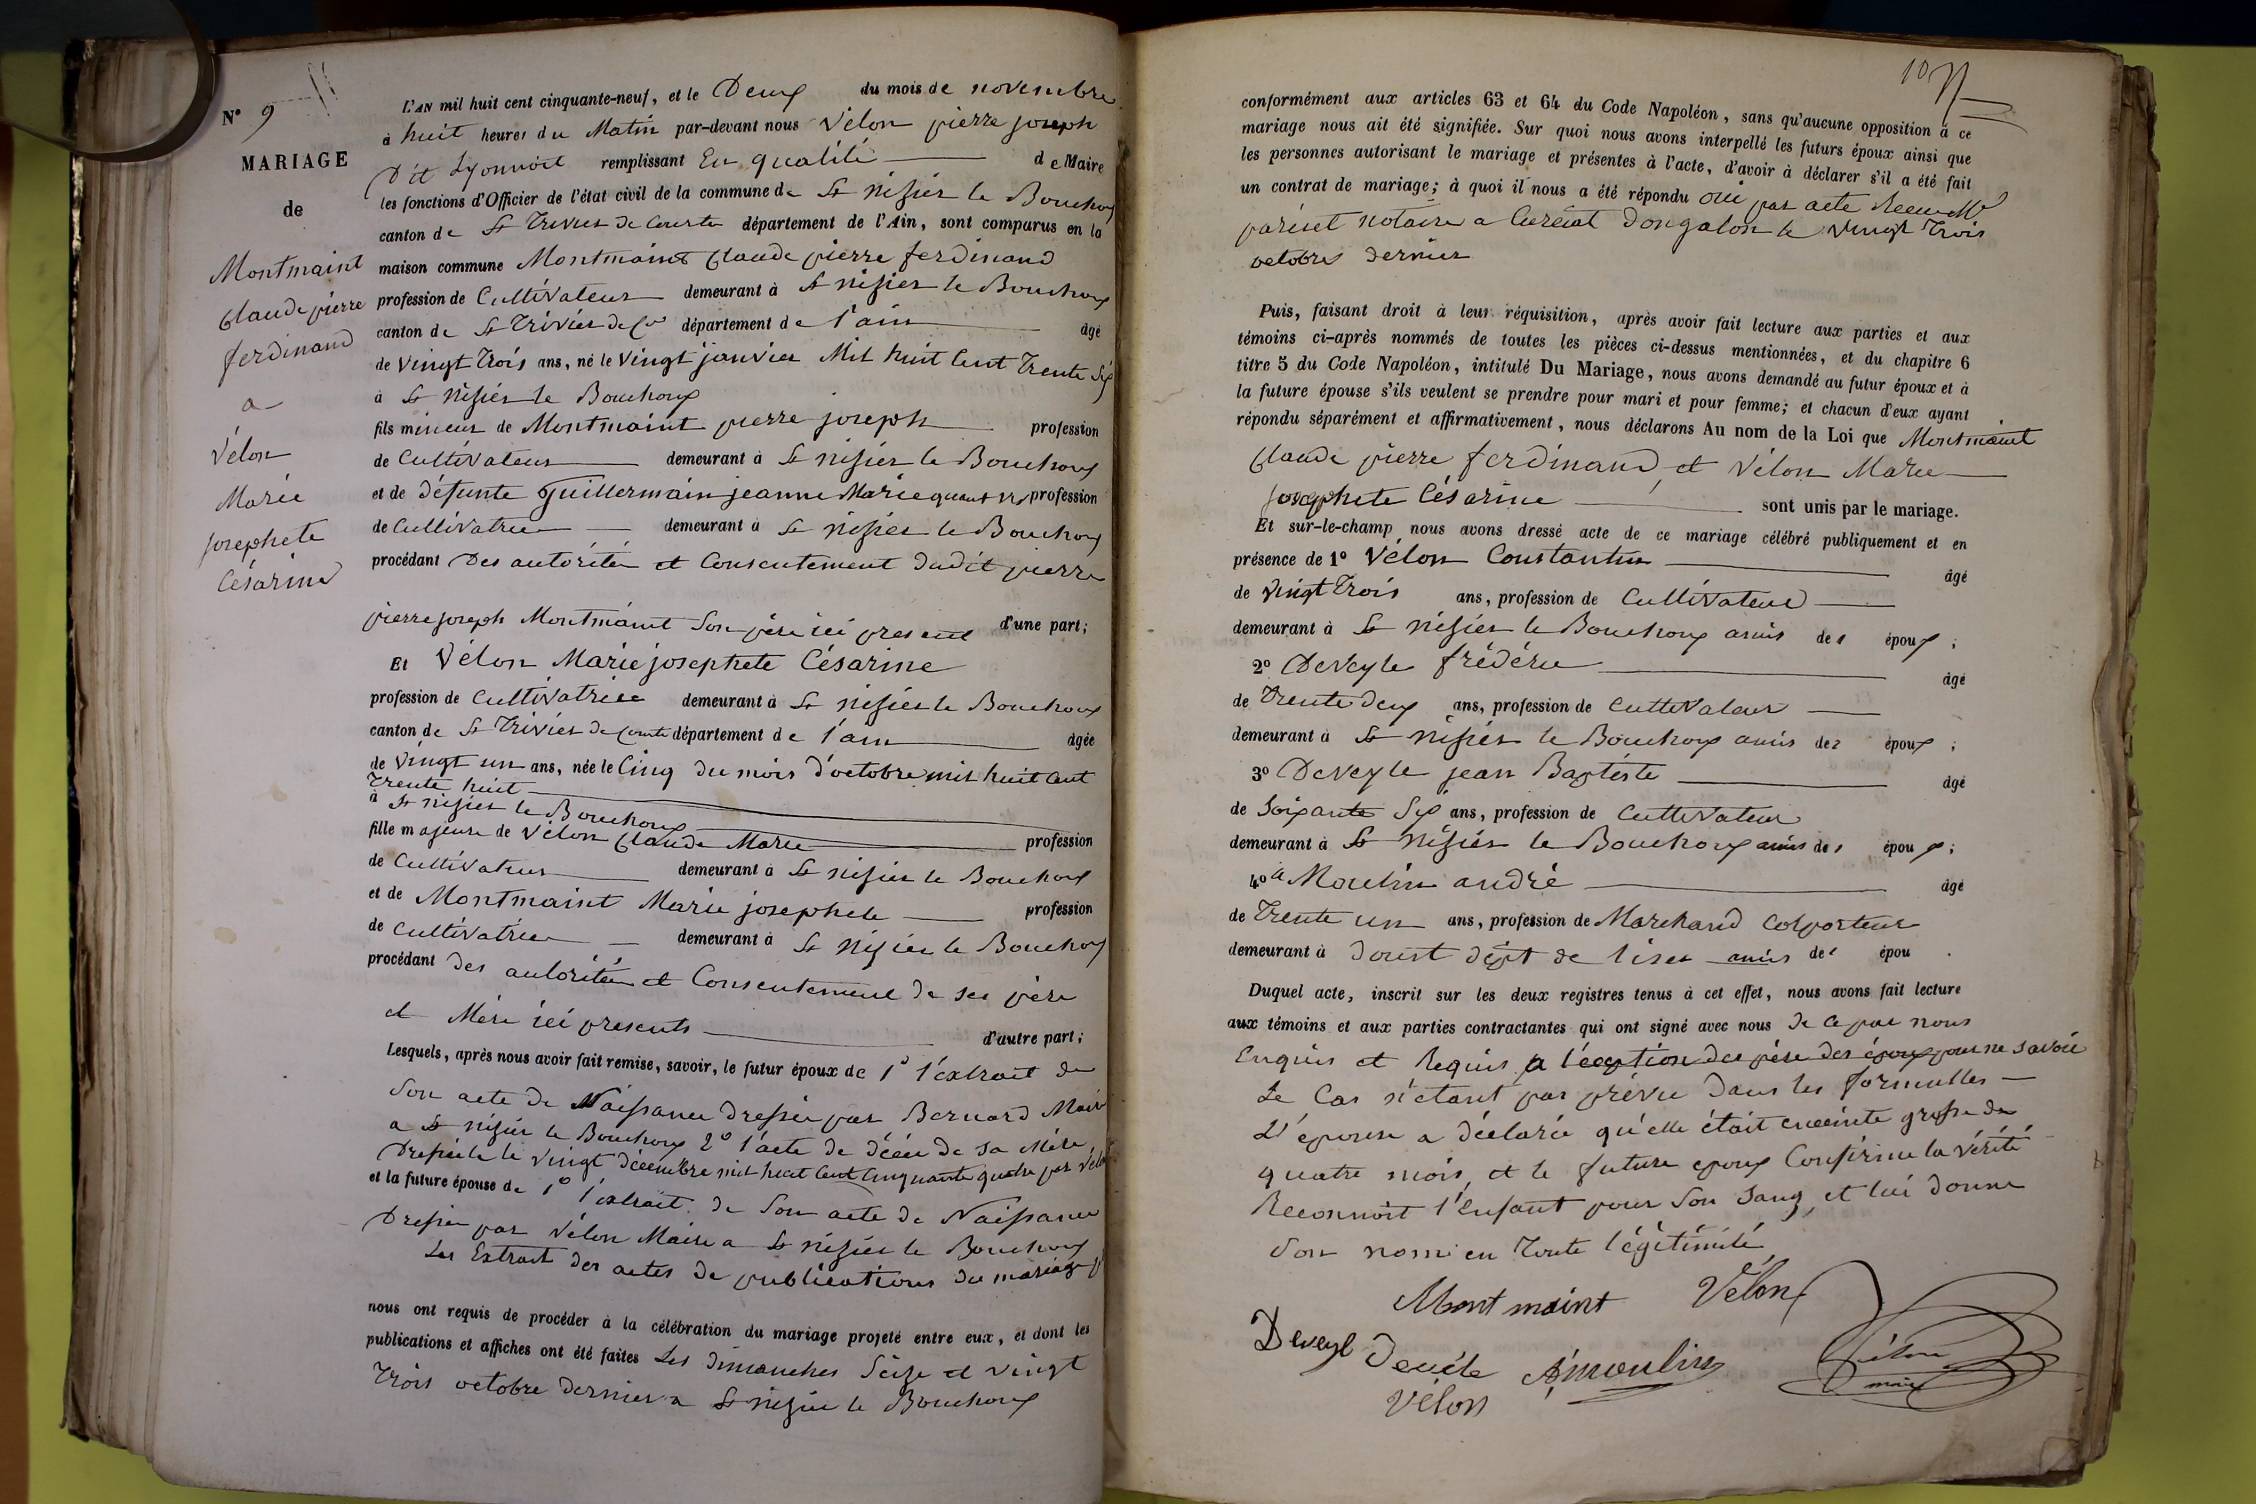 N° 9
MARIAGE
de
Montmaint
Claude pierre
ferdinand
a
Vélon
Marie
josephete
Césarine
L'AN mil huit cent cinquante-neuf, et le Deux du mois de novembre
à huit heures du Matin par-devant nous Vélon pierre joseph
Dit Lyonnoit remplissant En qualité de Maire
les fonctions d'Officier de l'état civil de la commune de St nisier le Bouchoux
canton de St Trivier de Courte département de l'Ain, sont comparus en la
maison commune Montmaint Claude pierre ferdinand
profession de Cultivateur demeurant à St nisier le Bouchoux
canton de St Trivier de Co département de l'ain âgé
de vingt Trois ans, né le Vingt janvier Mil huit Cent Trente Six
à St nisier le Bouchoux
fils mineur de Montmaint pierre joseph profession
de Cultivateur demeurant à St nisier le Bouchoux
et de défunte Guillermain jeanne Marie quant vi profession
de Cultivatrice demeurant à St nisier le Bouchoux
procédant Des autorités et Consentement dudit pierre
pierre joseph Montmaint Son père ici présent d'une part;
Et Vélon Marie josephete Césarine
profession de Cultivatrice demeurant à St nisier le Bouchoux
canton de St Trivier de Courte département de l'ain âgée
de Vingt un ans, née le Cinq du mois d'octobre mil huit Cent
Trente huit
à St nisier le Bouchoux
fille majeure de Vélon Claude Marie profession
de Cultivateur demeurant à St nisier le Bouchoux
et de Montmaint Marie josephete profession
de Cultivatrice demeurant à St nisier le Bouchoux
procédant des autorités et Consentement de ses père
et Mère ici presents d'autre part;
Lesquels, après nous avoir fait remise, savoir, le futur époux de 1° l'extrait de
Son acte de Naissance dressée par Bernard Maire
a St nisier le Bouchoux 2° l'acte de décée de sa Mère
Dressée le vingt décembre mil huit Cent Cinquante quatre par Vélon
et la future épouse de 1° l'extrait de Son acte de Naissance
Dressée par Vélon Maire a St nisier le Bouchoux
Les Extrait des actes de publications du mariage
nous ont requis de procéder à la célébration du mariage projeté entre eux, et dont les
publications et affiches ont été faites Les dimanches Seize et vingt
Trois octobre dernier a St nisier le Bouchoux
10
conformément aux articles 63 et 64 du Code Napoléon, sans qu'aucune opposition à ce
mariage nous ait été signifiée. Sur quoi nous avons interpellé les futurs époux ainsi que
les personnes autorisant le mariage et présentes à l'acte, d'avoir à déclarer s'il a été fait
un contrat de mariage; à quoi il nous a été répondu oui par acte Recu Me
pariset notaire a Curciat Dongalon le vingt Trois
octobre dernier
Puis, faisant droit à leur réquisition, après avoir fait lecture aux parties et aux
témoins ci-après nommés de toutes les pièces ci-dessus mentionnées, et du chapitre 6
titre 5 du Code Napoléon, intitulé Du Mariage, nous avons demandé au futur époux et à
la future épouse s'ils veulent se prendre pour mari et pour femme; et chacun d'eux ayant
répondu séparément et affirmativement, nous déclarons Au nom de la Loi que Montmaint
Claude pierre ferdinand, et Vélon Marie
josephete Césarine sont unis par le mariage.
Et sur-le-champ nous avons dressé acte de ce mariage célébré publiquement et en
présence de 1° Vélon Constantin âgé
de Vingt Trois ans, profession de Cultivateur
demeurant à St nisier le Bouchoux amis des époux;
2° Deveyle frédéric âgé
de Trente deux ans, profession de Cultivateur
demeurant à St nisier le Bouchoux amis des époux;
3° Deveyle jean Baptiste âgé
de Soixante Six ans, profession de Cultivateur
demeurant à St nisier le Bouchoux amis des époux;
4° Moulin andré âgé
de Trente un ans, profession de Marchand Colporteur
demeurant à dept de l'iser amis des épou .
Duquel acte, inscrit sur les deux registres tenus à cet effet, nous avons fait lecture
aux témoins et aux parties contractantes qui ont signé avec nous de ce par nous
Enquis et Requis a l'éception des père des époux pour ne savoir
Le Cas n'étant pas prévu dans les formulles
L'épouse a déclarée qu'elle était enceinte grosse de
quatre mois, et le future epoux Confirme la vérité
Reconnoit l'Enfant pour Son Sang, et lui donne
Son nom en Toute légitimité
Montmaint Vélon
Deveyl Devéle A. moulin Vélon
maire
Vélon